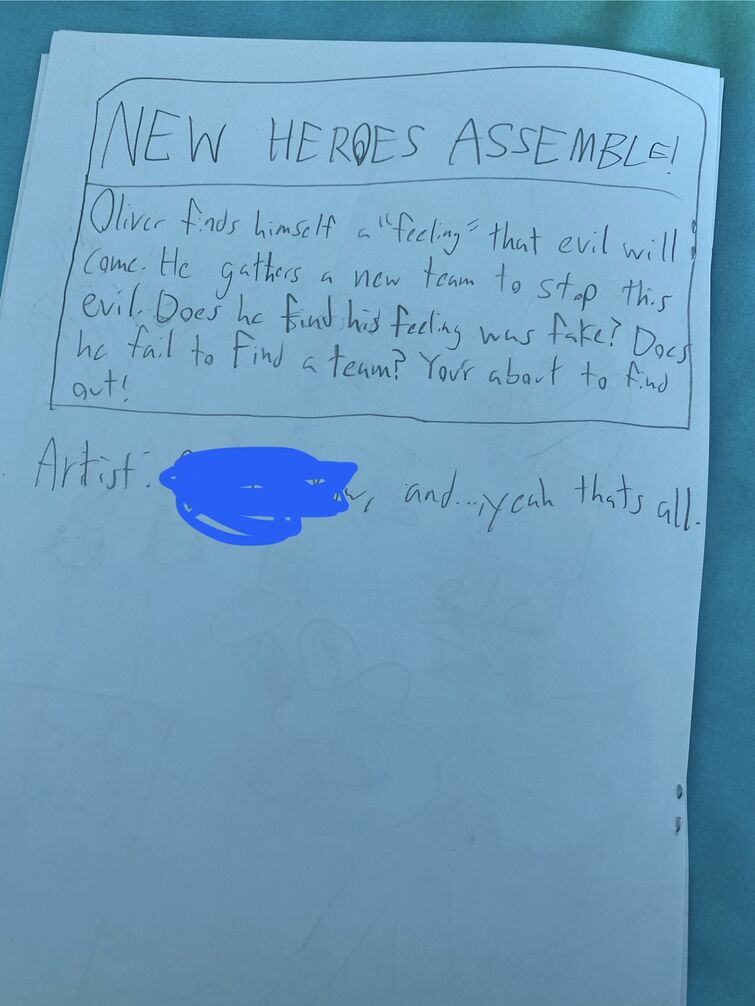 NEW HEROES ASSEMBLE!
Oliver finds himself a "feeling" that evil will
come. He gathers a new team to stop this
evil. Does he find his feeling was fake? Does
he fail to find a team? Your about to find
out!
Artist: and...yeah thats all.